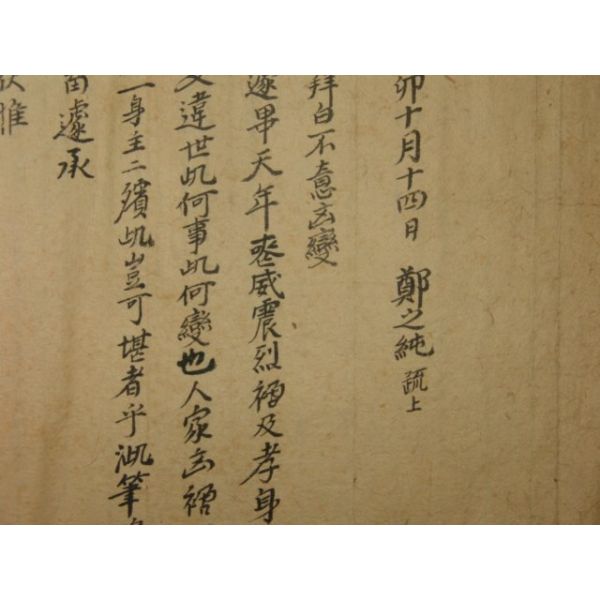 卯十月十四日 鄭之純 疏上
拜白不意凶變
遽畢天年 威震烈禍及孝身
違世此何事此何變也人家凶禍
一身主二殯此豈可堪者乎 筆
遽承